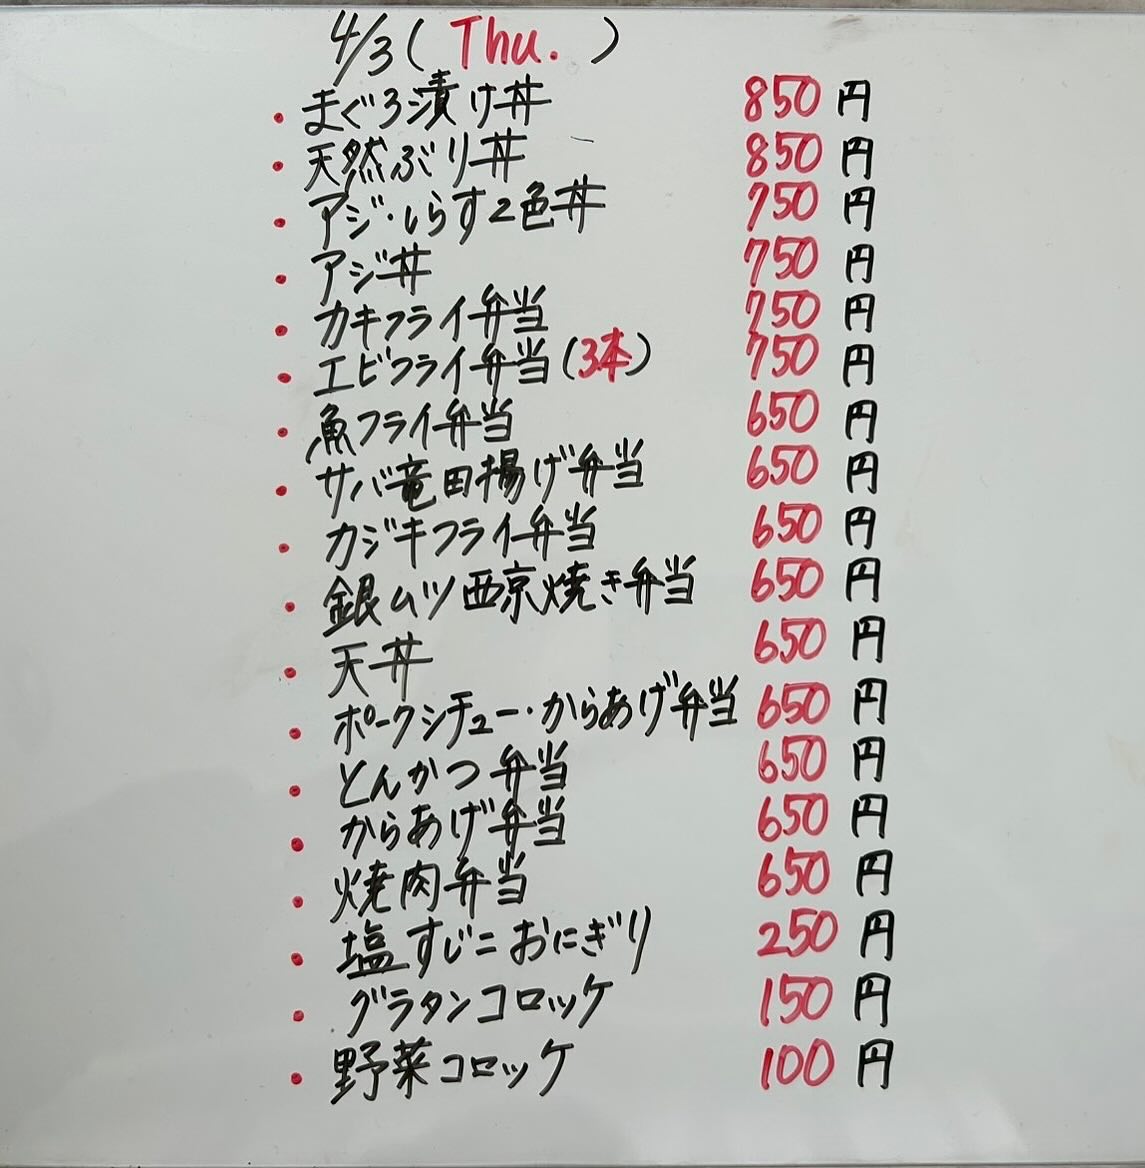 4/3( Thu. )
・まぐろ漬け丼 850円
・天然ぶり丼 850円
・アジ・しらす2色丼 750円
・アジ丼 750円
・カキフライ弁当 750円
・エビフライ弁当(3本) 750円
・魚フライ弁当 650円
・サバ竜田揚げ弁当 650円
・カジキフライ弁当 650円
・銀ムツ西京焼き弁当 650円
・天丼 650円
・ポークシチュー・からあげ弁当 650円
・とんかつ弁当 650円
・からあげ弁当 650円
・焼肉弁当 650円
・塩すじこおにぎり 250円
・グラタンコロッケ 150円
・野菜コロッケ 100円